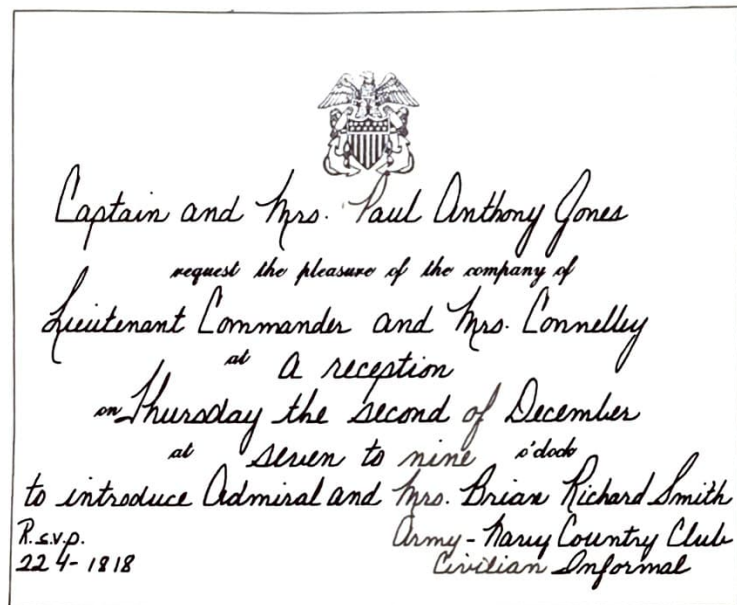 Captain and Mrs. Paul Anthony Jones
request the pleasure of the company of
Lieutenant Commander and Mrs. Connelley
at A reception
on Thursday the second of December
at seven to nine o'clock
to introduce Admiral and Mrs. Brian Richard Smith
R.s.v.p. Army-Navy Country Club
224-1818 Civilian Informal